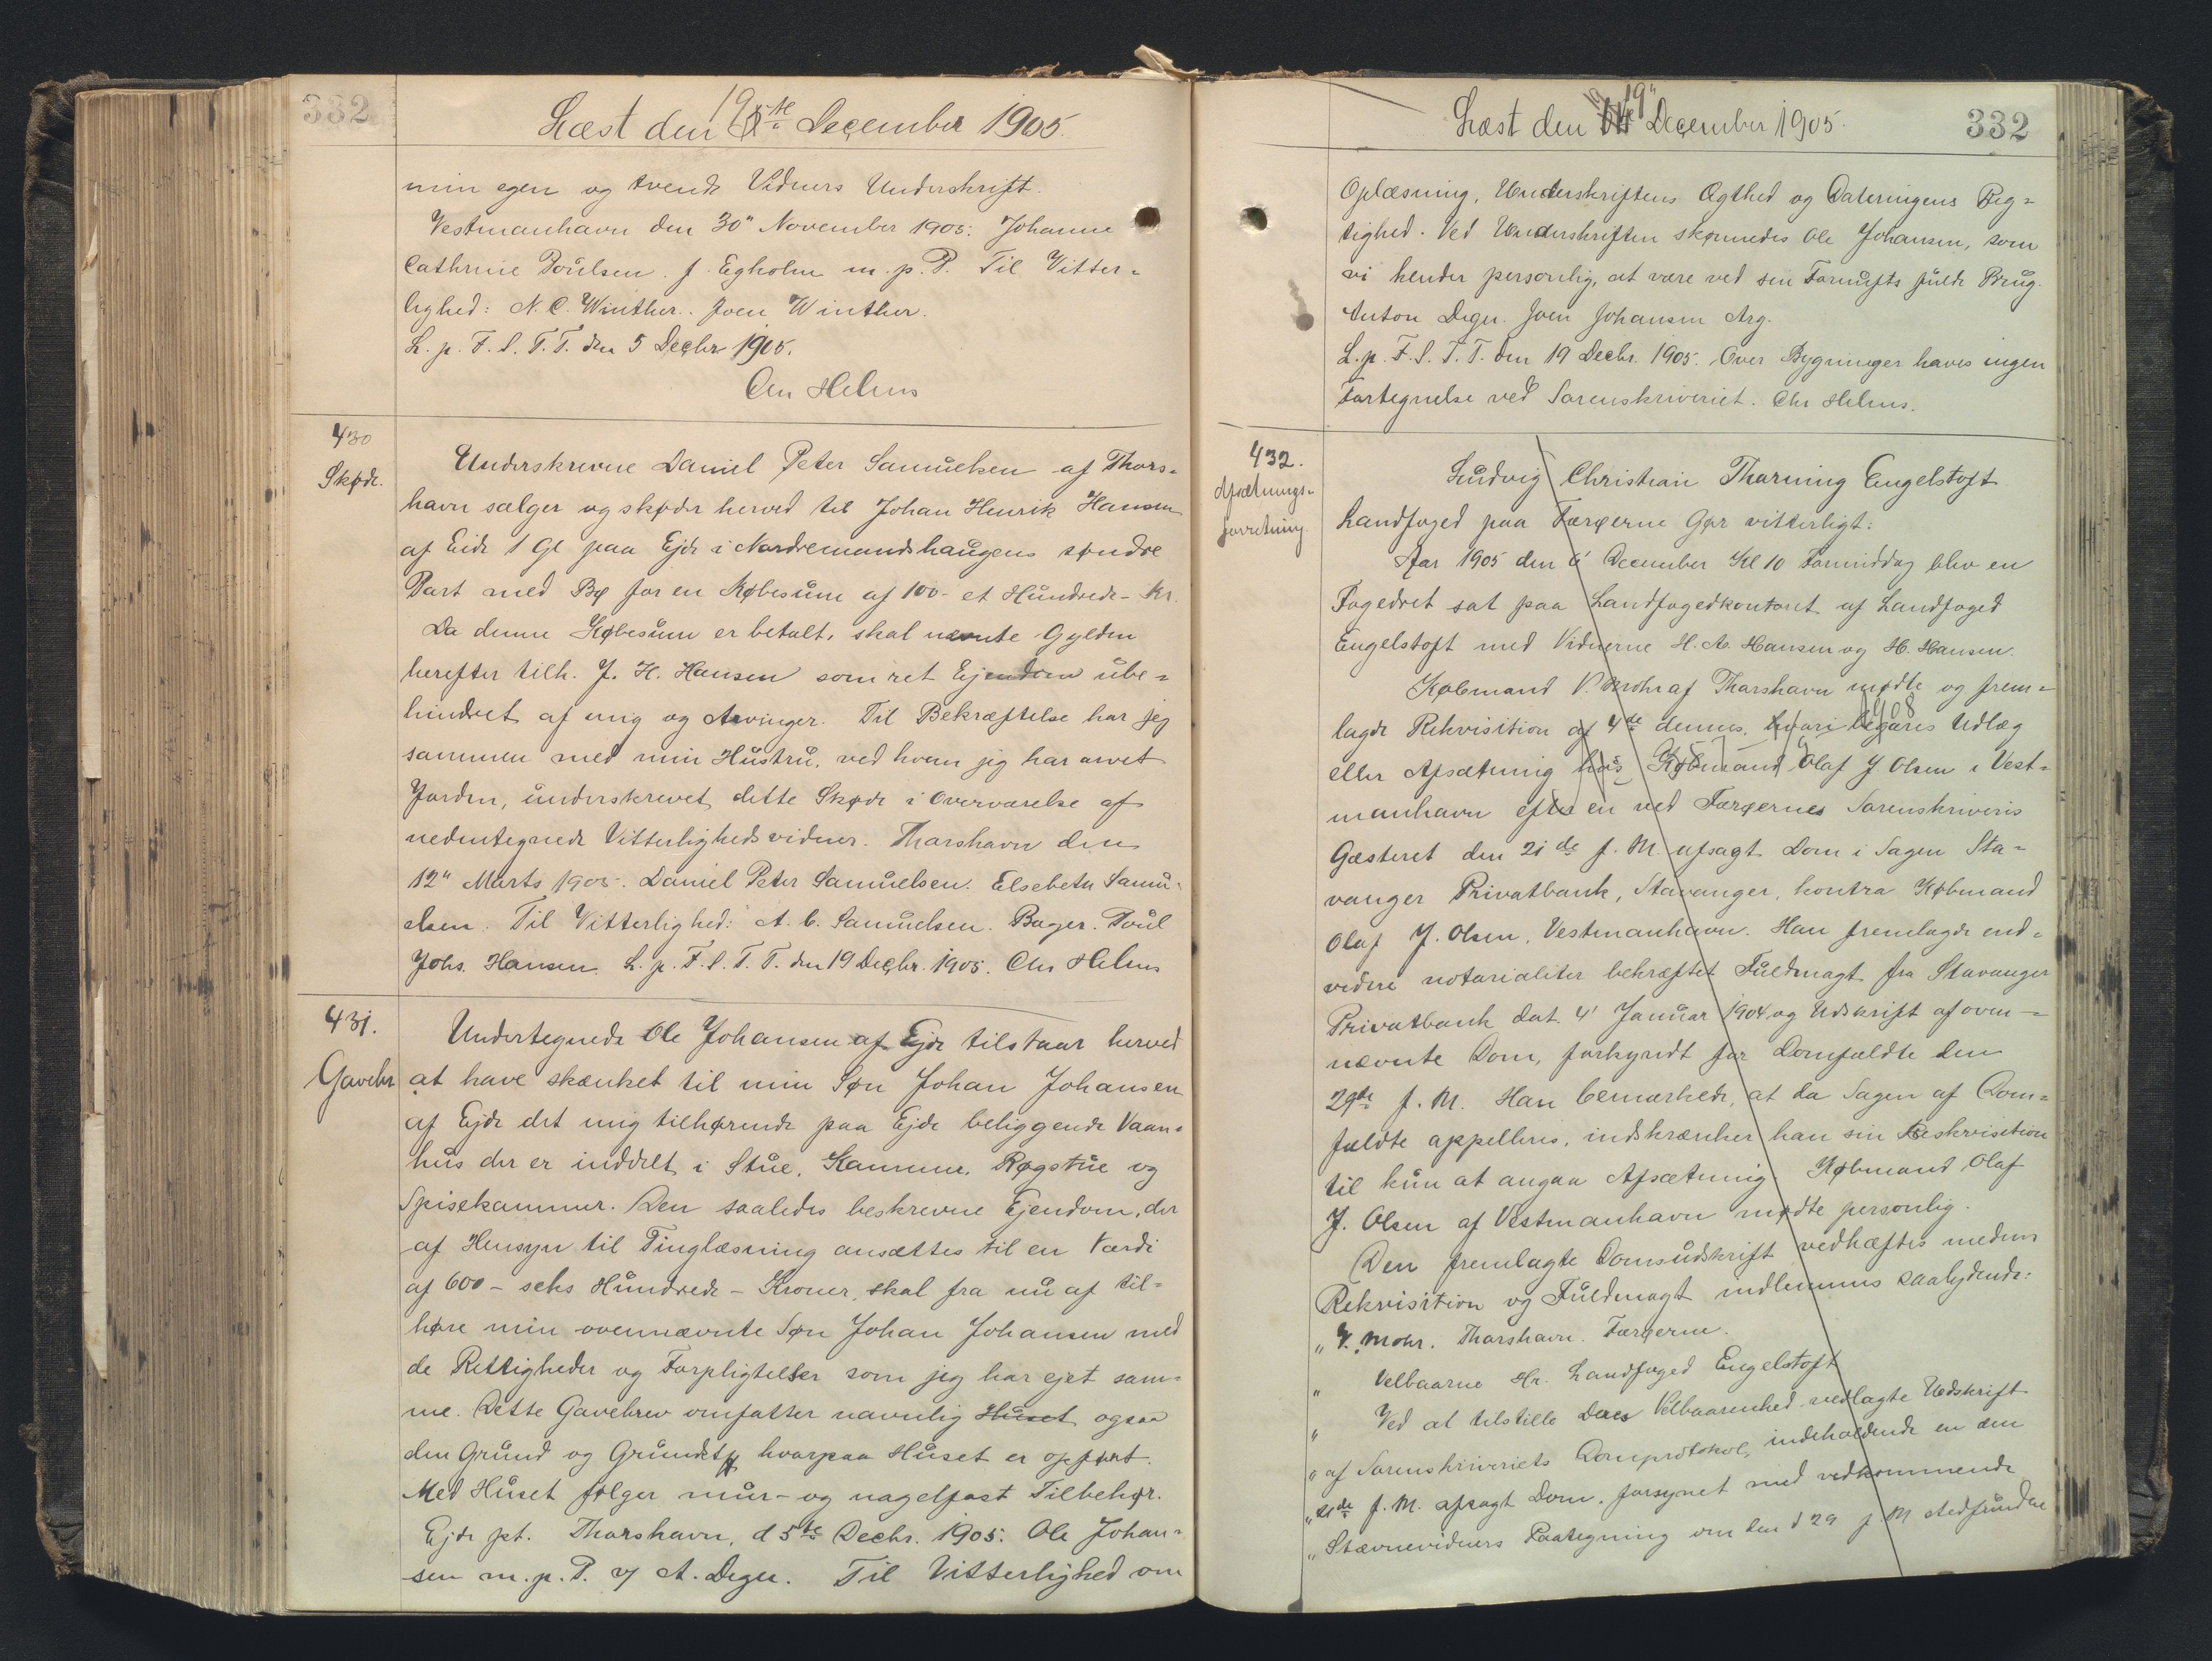 332
Læst den 19de December 1905.
min egen og tvende Vidners Underskrift.
Vestmanhavn den 30" November 1905. Johanne
Cathrine Poulsen. J. Egholm m. p. P. Til Vitter-
lighed: N. C. Winther. Joen Winther.
L. p. F. S. T. T. den 5 Decbr 1905.
Chr Helms
430
Skøde.
Underskrevne Daniel Peter Samuelsen af Thors-
havn sælger og skøder herved til Johan Henrik Hansen
af Eide 1 Gl paa Ejde i Nordremandshaugens søndre
Part med Bø for en Købesum af 100 - et Hundrede - Kr.
Da denne Købesum er betalt, skal nævnte Gylden
herefter tilh. J. H. Hansen som ret Ejendom ube-
hindret af mig og Arvinger. Til Bekræftelse har jeg
sammen med min Hustru, ved hvem jeg har arvet
Jorden, underskrevet dette Skøde i Overværelse af
nedentegnede Vitterlighedsvidner. Thorshavn den
12" Marts 1905. Daniel Peter Samuelsen. Elsebeth Samu-
elsen. Til Vitterlighed: A. C. Samuelsen. Bager. Poul
Johs. Hansen. L. p. F. S. T. T. den 19 Decbr. 1905. Chr Helms
431.
Gavebr
Undertegnede Ole Johansen af Ejde tilstaar herved
at have skænket til min Søn Johan Johansen
af Ejde det mig tilhørende paa Ejde beliggende Vaan-
hus der er inddelt i Stue, Kammer, Røgstue og
Spisekammer. Den saaledes beskrevne Ejendom, der
af Hensyn til Tinglæsning ansættes til en Værdi
af 600 - seks Hundrede - Kroner, skal fra nu af til-
høre min ovennævnte Søn Johan Johansen med
de Rettigheder og Forpligtelser som jeg har ejet sam-
me. Dette Gavebrev omfatter navnlig Huset ogsaa
den Grund og Grundst hvorpaa Huset er opført.
Med Huset følger mur- og nagelfast Tilbehør.
Ejde pt. Thorshavn, d 5te Decbr. 1905. Ole Johan-
sen m. p. P. v/ A. Degn. Til Vitterlighed om
Læst den 19" December 1905.
332
Oplæsning, Underskriftens Ægthed og Dateringens Rig-
tighed. Ved Underskriften skønnedes Ole Johansen, som
vi kender personlig, at være ved sin Fornufts fulde Brug.
Anton Degn. Joen Johansen Arg.
L. p. F. S. T. T. den 19 Decbr. 1905. Over Bygninger haves ingen
Fortegnelse ved Sorenskriveriet. Chr Helms.
432.
Afsætnings-
forretning
Ludvig Christian Tharning Engelstoft
Landfoged paa Færøerne Gør vitterligt:
Aar 1905 den 6' December Kl 10 Formiddag blev en
Fogedret sat paa Landfogedkontoret af Landfoged
Engelstoft med Vidnerne H. A. Hansen og H. Hansen.
Købmand V. Mohr af Thorshavn mødte og frem-
lagde Rekvisition af 4de dennes, hvori begæres Udlæg
eller Afsætning hos Købmand Olaf J. Olsen i Vest-
manhavn efter en ved Færøernes Sorenskriveris
Gæsteret den 21de f. M. afsagt Dom i Sagen Sta-
vanger Privatbank, Stavanger, kontra Købmand
Olaf J. Olsen, Vestmanhavn. Han fremlagde end-
videre notarialiter bekræftet Fuldmagt fra Stavanger
Privatbank dat. 4' Januar 1904, og Udskrift af oven-
nævnte Dom, forkyndt for Domfældte den
29de f. M. Han bemærkede, at da Sagen af Dom-
fældte appelleres, indskrænker han sin Reskvisition
til kun at angaa Afsætning. Købmand Olaf
J. Olsen af Vestmanhavn mødte personlig.
Den fremlagte Domsudskrift vedhæftes medens
Rekvisition og Fuldmagt indlemmes saalydende:
" V. Mohr. Thorshavn. Færøerne.
" Velbaarne Hr. Landfoged Engelstoft
" Ved at tilstille Deres Velbaarenhed vedlagte Udskrift
" af Sorenskriveriets Domprotokol, indeholdende en den
" 21de f. M. afsagt Dom, forsynet med vedkommende
" Stævnevidners Paategning om den d 29 f. M stedfundne